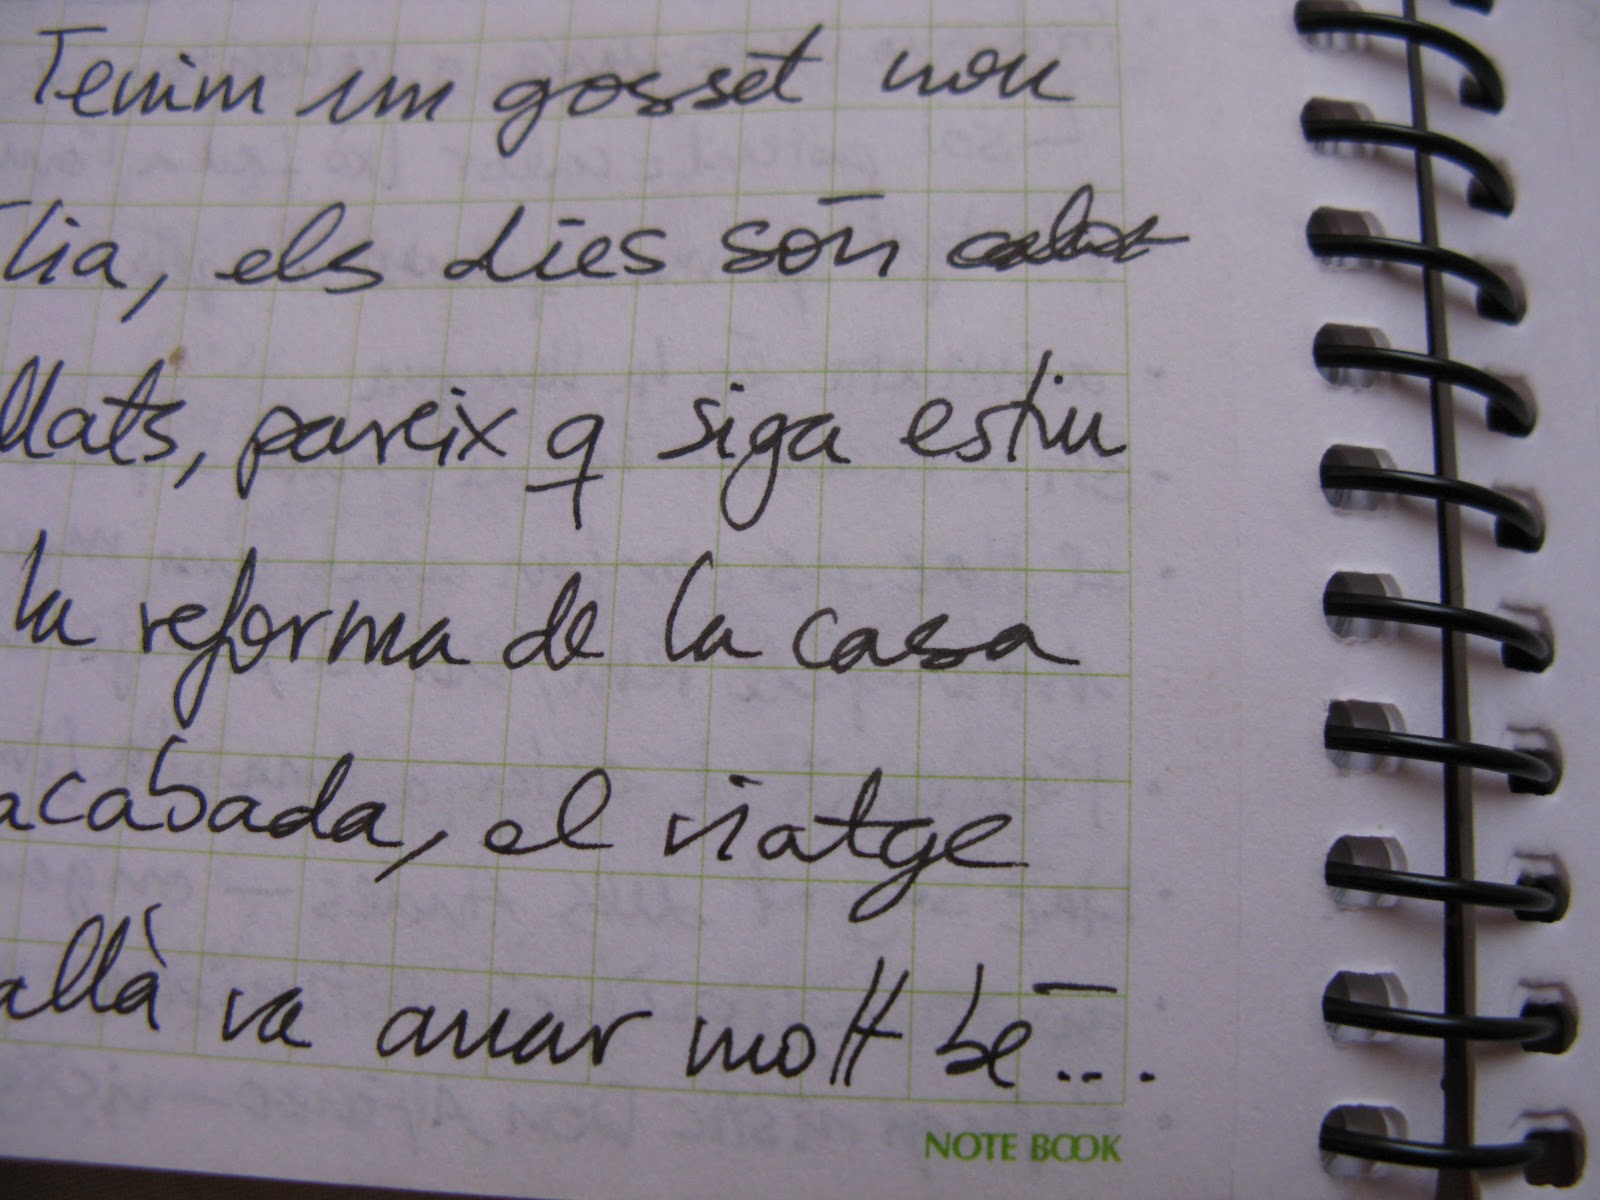 Tenim un gosset nou
els dies són
llats, pareix q siga estiu
la reforma de la casa
acabada, el viatge
allà va anar molt bé...
NOTE BOOK